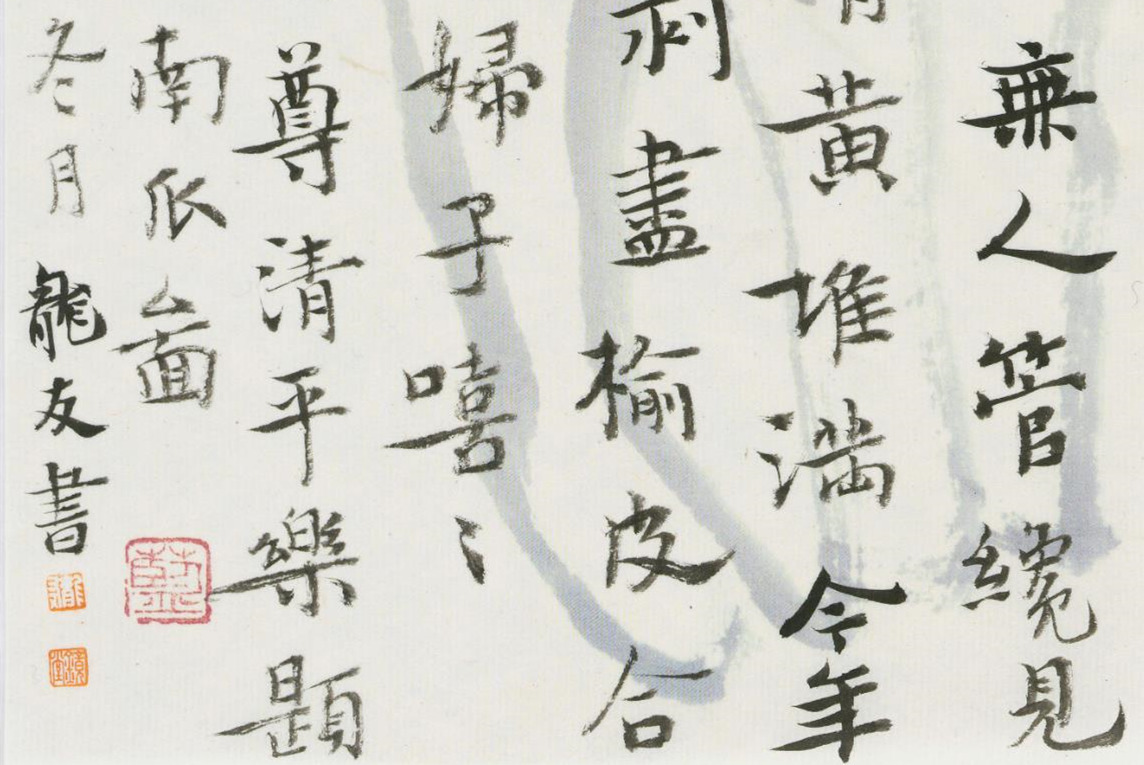 無人管纔見
黃堆滿今年
剝盡榆皮合
婦子嘻〻
尊清平樂題
南瓜啚
冬月龍友書